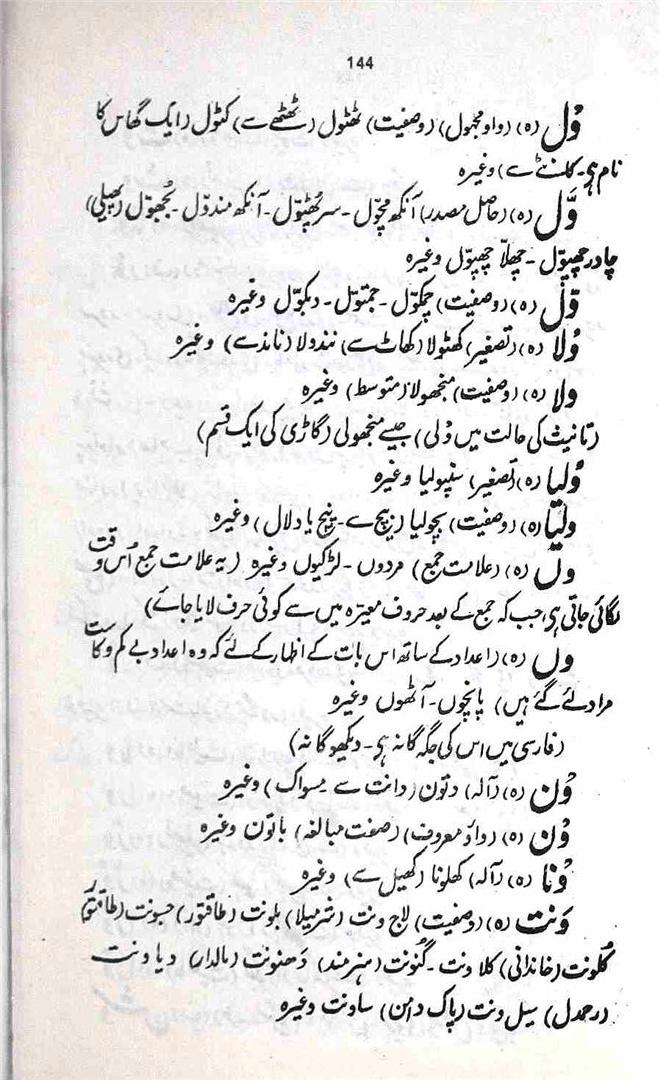 144
وُل (ہ) (واو مجہول) (وصفیت) ٹھٹول (ٹھٹھے سے) کٹول (ایک گھاس کا
نام ہی۔ کانٹے سے) وغیرہ
وَّل (ہ) (حاصل مصدر) آنکھ مچّول۔ سر پھٹوّل۔ آنکھ مندوّل۔ بجھوّل (پہیلی)
چادر چھپوّل۔ چھلّا چھپوّل وغیرہ
وّل (ہ) (وصفیت) چمکوّل۔ جمتوّل۔ دبکوّل وغیرہ
وُلا (ہ) (تصغیر) کھٹولا (کھاٹ سے) نندولا (ناندے) وغیرہ
ولا (ہ) (وصفیت) منجھولا (متوسط) وغیرہ
(تانیث کی حالت میں وُلی) جیسے منجھولی (گاڑی کی ایک قسم)
وُلیا (ہ) (تصغیر) سنپولیا وغیرہ
ولیا (ہ) (وصفیت) بچولیا (بیچ سے۔ پنچ یا دلال) وغیرہ
وں (ہ) (علامت جمع) مردوں۔ لڑکیوں وغیرہ (یہ علامت جمع اُس وقت
لگائی جاتی ہی جب کہ جمع کے بعد حروف مغیرہ میں سے کوئی حرف لایا جائے)
وں (ہ) (اعداد کے ساتھ اس بات کے اظہار کے لئے کہ وہ اعداد بے کم و کاست
مراد لئے گئے ہیں) پانچوں۔ آٹھوں وغیرہ
(فارسی میں اس کی جگہ گانہ ہی۔ دیکھو گانہ)
وَن (ہ) (آلہ) دتون (دانت سے مسواک) وغیرہ
وُن (ہ) (واو معروف) (صفت مبالغہ) باتون وغیرہ
وُنا (ہ) (آلہ) کھلونا (کھیل سے) وغیرہ
وَنت (ہ) (وصفیت) لاج ونت (شرمیلا) بلونت (طاقتور) جسونت (طاقتور)
کُلونت (خاندانی) کلاونت۔ گُنونت (ہنرمند) دَھنونت (مالدار) دیا ونت
(رحمدل) سیل ونت (پاک دامن) ساونت وغیرہ